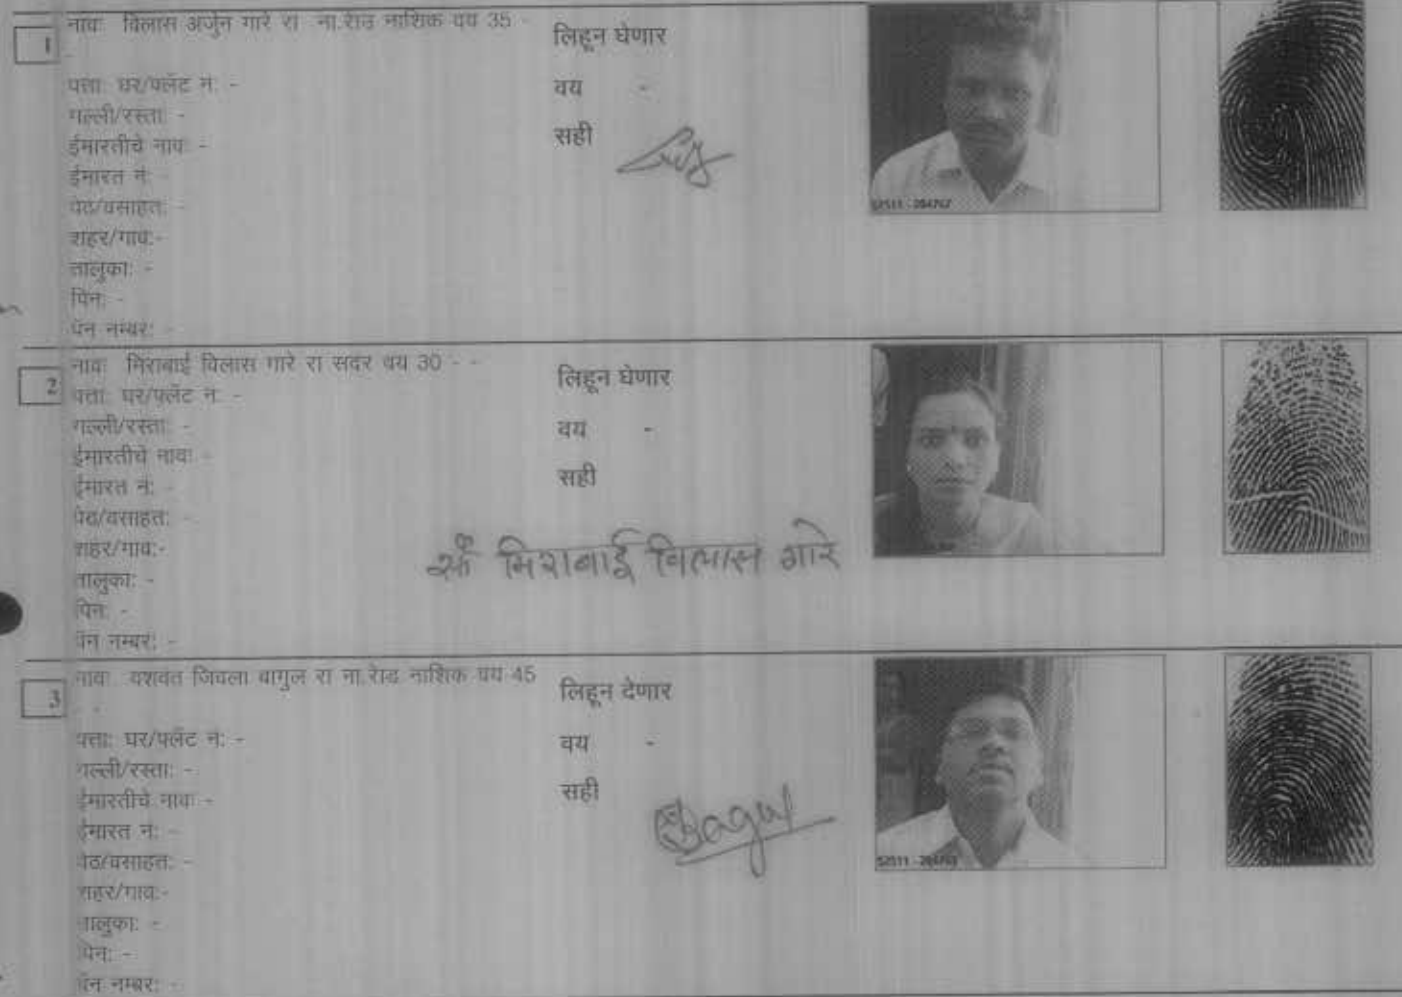 1
नावः विलास अर्जुन गारे रा ना.राेड नाशिक वय 35 -
-
पत्ताः घर/फ्लॅट नंः -
गल्ली/रस्ताः -
ईमारतीचे नावः -
ईमारत नंः -
पेठ/वसाहतः -
शहर/गावः-
तालुकाः -
पिनः -
पॅन नम्बरः -
लिहून घेणार
वय -
सही
52511 - 284767
2
नावः मिराबाई विलास गारे रा सदर वय 30 - -
पत्ताः घर/फ्लॅट नंः -
गल्ली/रस्ताः -
ईमारतीचे नावः -
ईमारत नंः -
पेठ/वसाहतः -
शहर/गावः-
तालुकाः -
पिनः -
पॅन नम्बरः -
लिहून घेणार
वय -
सही
मिराबाई विलास गारे
3
नावः यशवंत जिवला बागुल रा ना.राेड नाशिक वय 45
- -
पत्ताः घर/फ्लॅट नंः -
गल्ली/रस्ताः -
ईमारतीचे नावः -
ईमारत नंः -
पेठ/वसाहतः -
शहर/गावः-
तालुकाः -
पिनः -
पॅन नम्बरः -
लिहून देणार
वय -
सही
Bagul